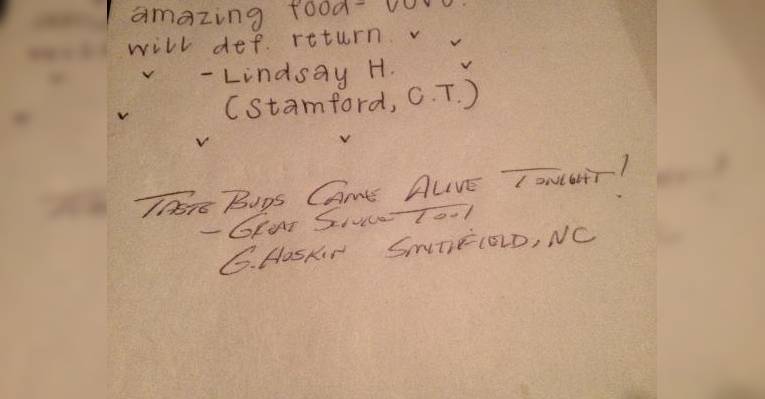 amazing food-
will def. return
- Lindsay H.
(Stamford, C.T.)
TASTE BUDS CAME ALIVE TONIGHT!
- GREAT SERVICE TOO!
G. HOSKIN SMITHFIELD, NC